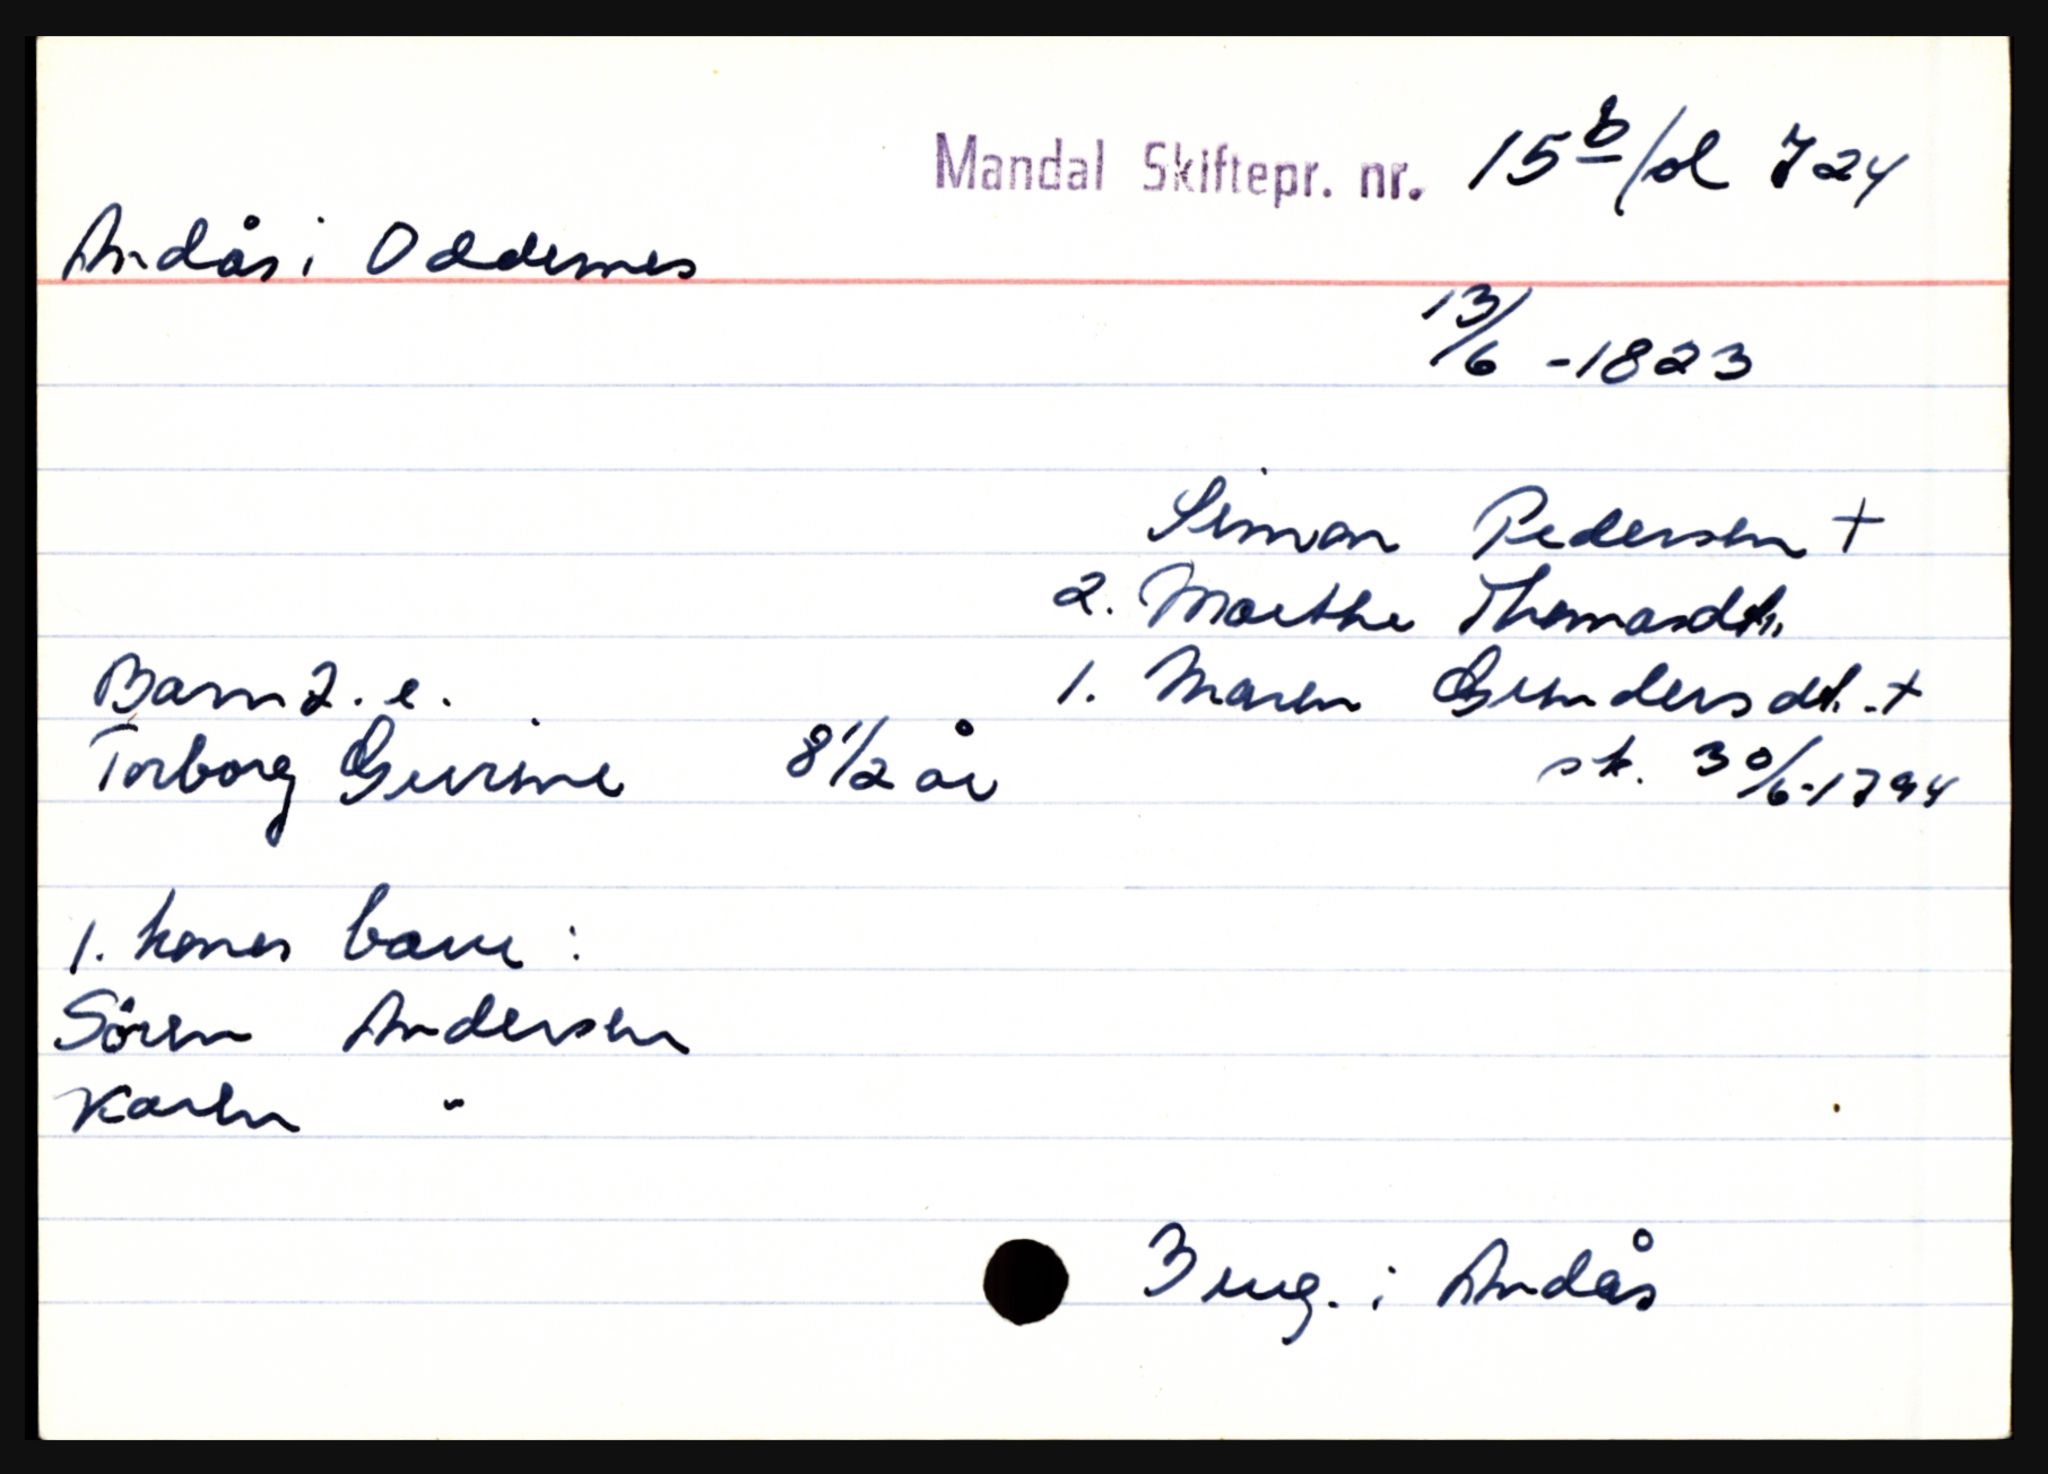 Mandal Skiftepr. nr. 15b/d 724
Andås i Oddernes
13/6 -1823
Simon Pedersen +
2. Marthe Thomasdtr.
Barn 2. e.
1. Maren Gundersdt. +
Torborg Gurine 8 1/2 år
sk. 30/6-1794
1. kones barn :
Sören Andersen
Karen "
3 eng. i Andås